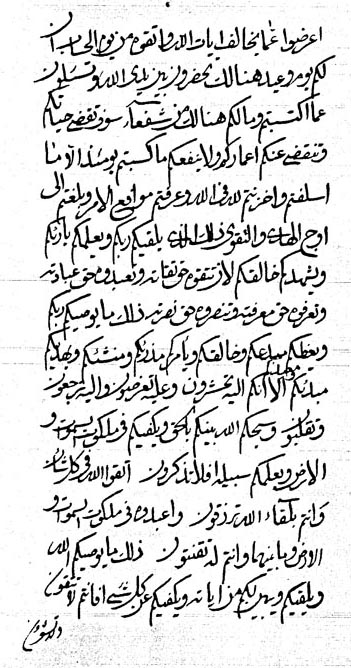 اعرضوا عما يخالف ايات الله واتقوه من يوم الحساب ان
لكم يوم وعيد هنالك تحضرون بين يدى الله وتسئلون
عما اكتسبتم ومالكم هنالك من شفعاء سوف تقضى حياتكم
وتنقضى عنكم اعماركم ولا ينفعكم ما كسبتم يومئذ الا ما
اسلفتم واخرتم لله فى الله وعرفتم مواقع الامر وبلغتم الى
اوج الهدى والتقوى ذلك الذى يلقيكم ربكم ويعلمكم بارئكم
ويشهدكم خالقكم لان تتقوه حق تقاته وتعبدوه حق عبادته
وتعرفوه حق معرفته وتنصروه حق نصرته ذلك ما يوصيكم ربكم
ويعظكم مبدعكم وخالقكم ويامركم منشئكم ويهديكم
الا انكم اليه تحشرون وعليه تعرضون واليه ترجعون
وتقلبون ويحكم الله بينكم بالحق ويلقيكم فى ملكوت السموات و
الارض ويعلمكم سبيله افلا تذكرون اتقوا الله فى كل شان
وانتم بلقاء الله ترزقون واعبدوه فى ملكوت السموات و
الارض وما بينهما وانتم له تقنتون ذلك ما يوصيكم الله
ويلقيكم ويريكم من اياته ويكفيكم عن كل شئ افانتم لا تتقون